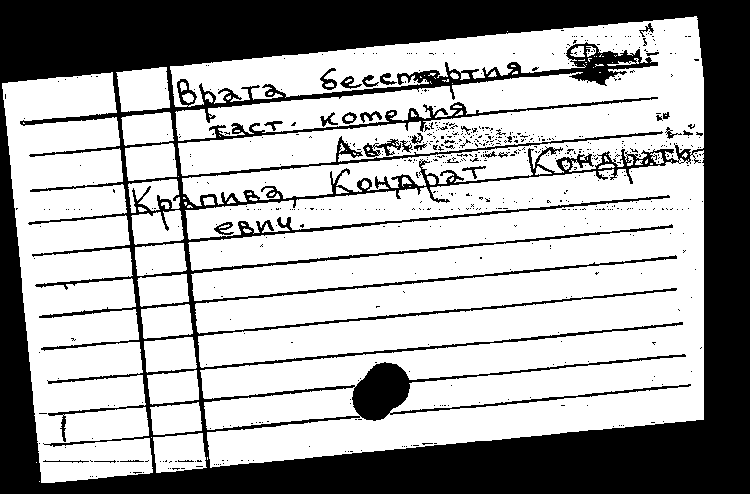 Врата бессмертия. Фан-
таст. комедия.
Авт.
Крапива, Кондрат Кондрать-
евич.